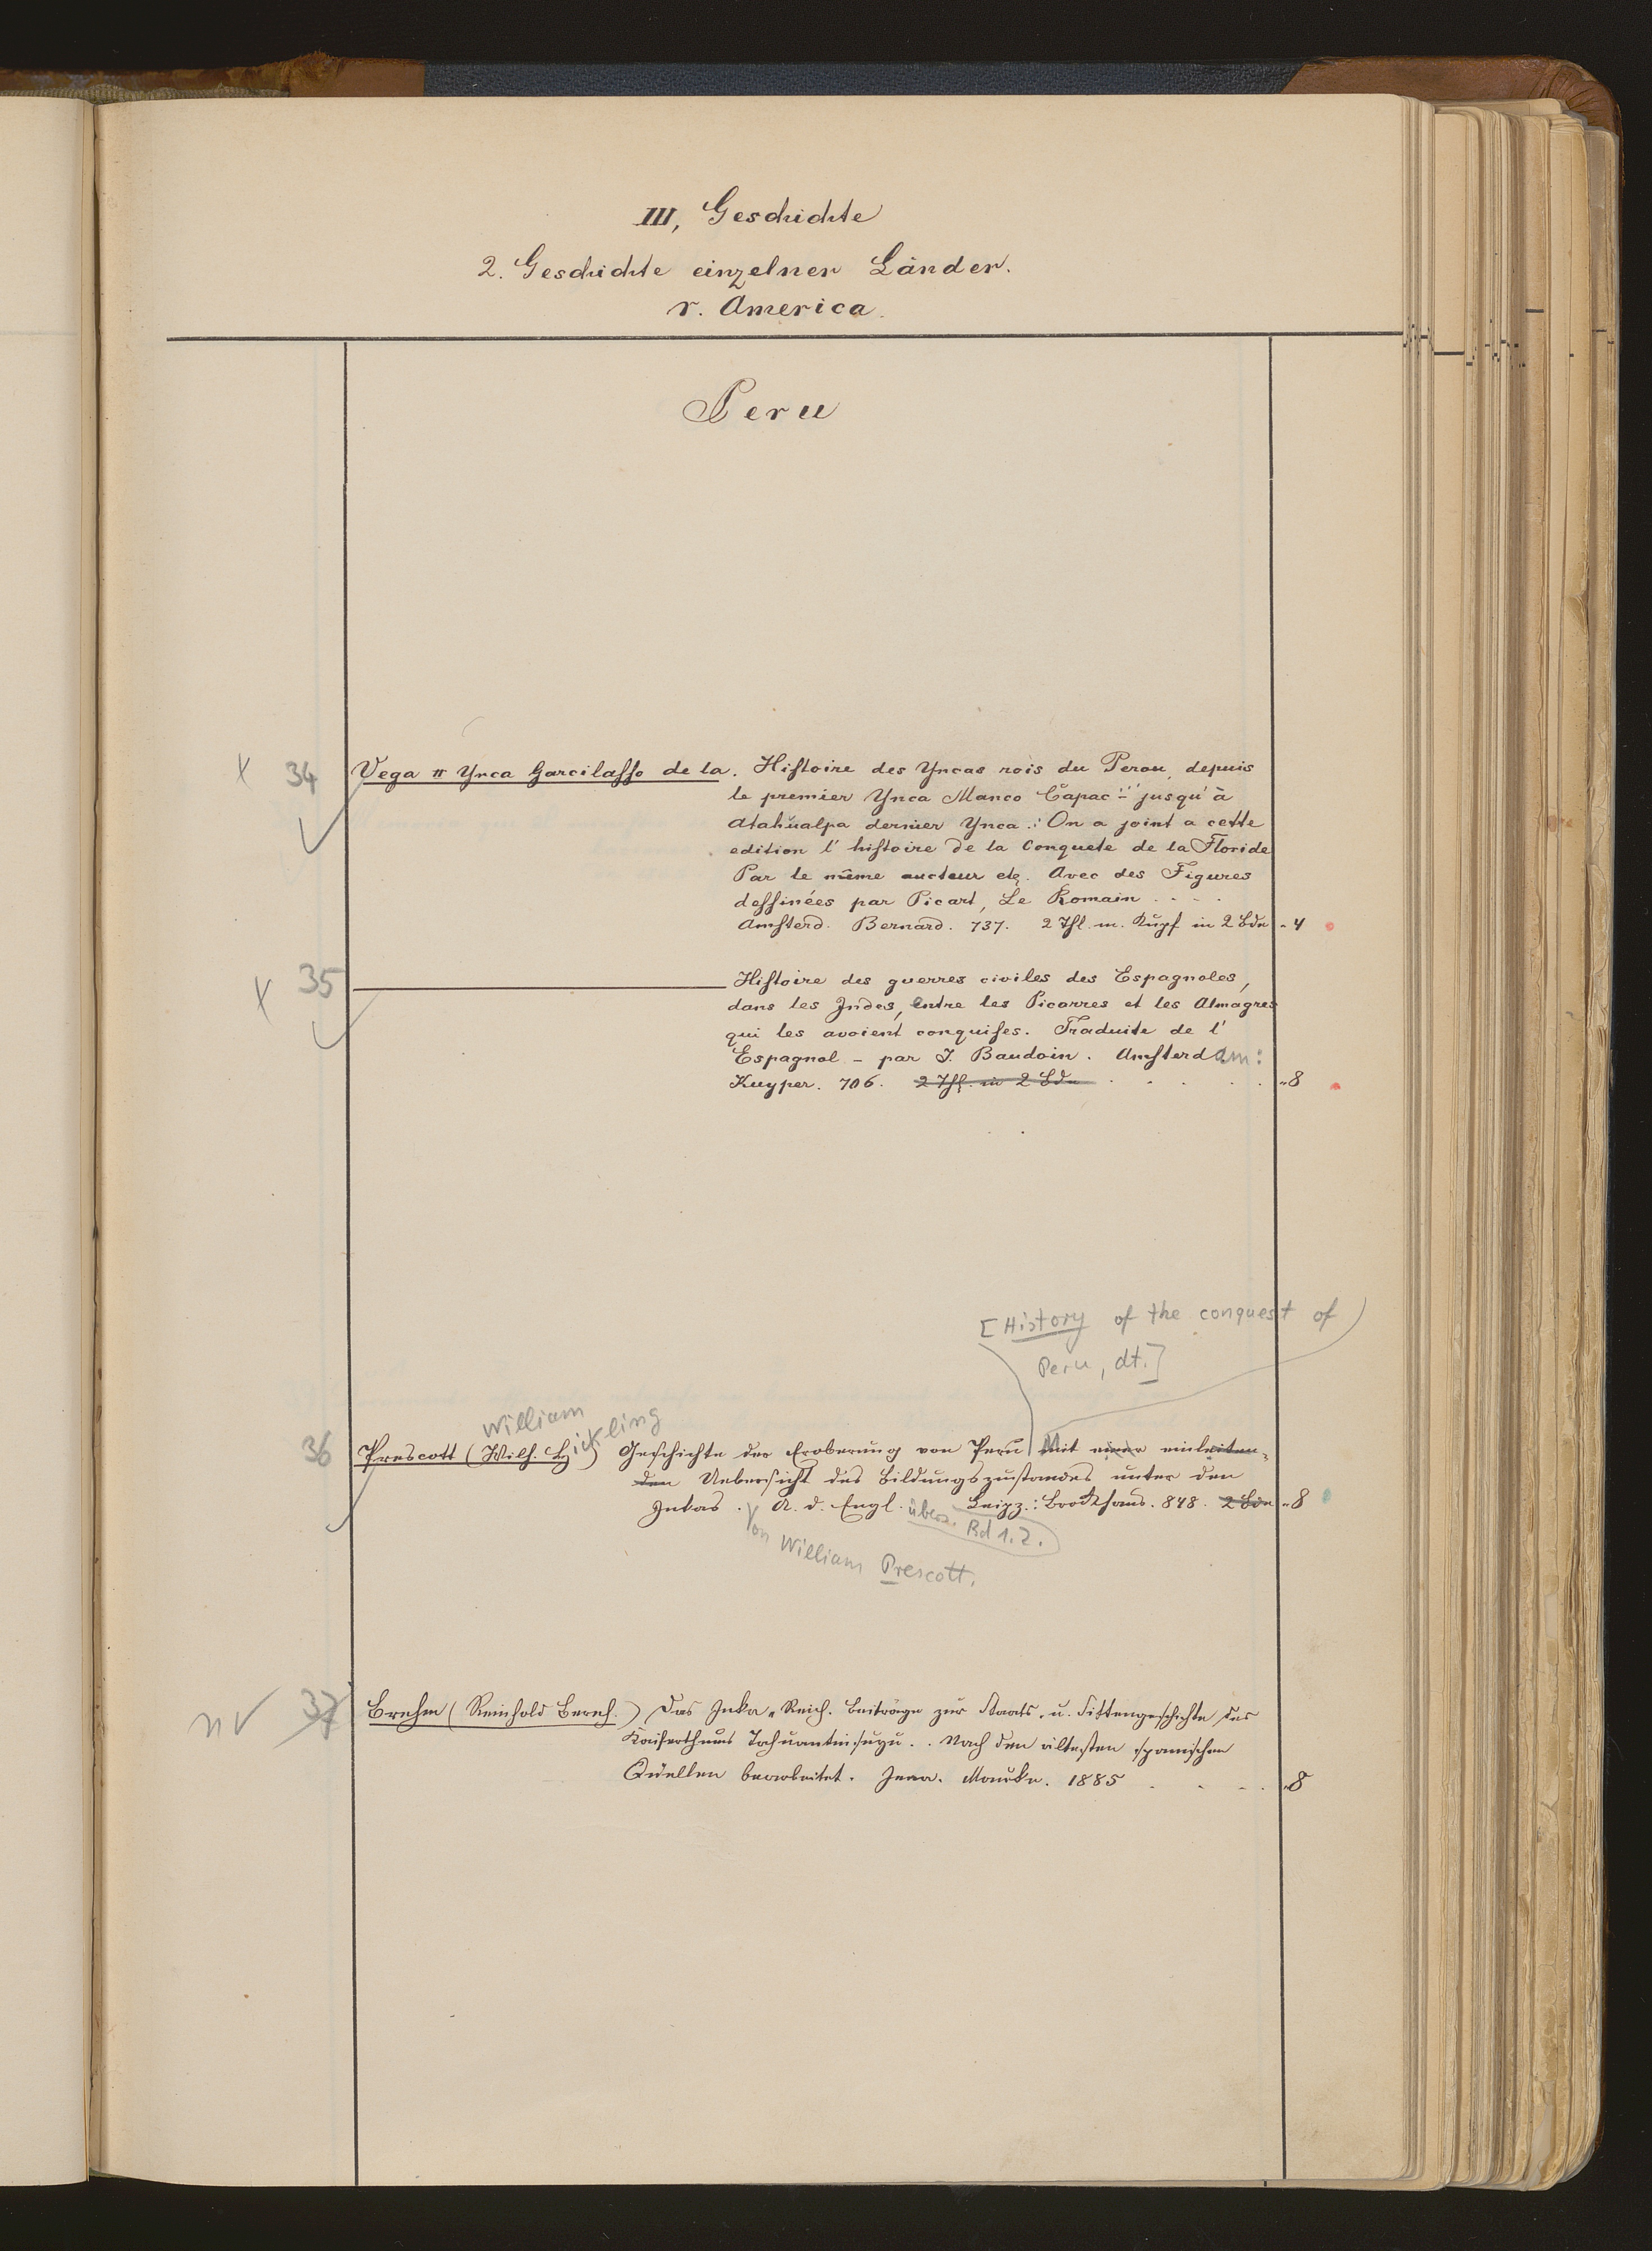 III, Geschichte
2. Geschichte einzelner Länder.
r. America.
Peru
+ 34 Vega # Ynca Garcilasso de la. Histoire des Yncas rois du Perou, depuis
le premier Ynca Manco Capac jusqu'à
Atahualpa dernier Ynca .: On a joint a cette
edition l'histoire de la Conquete de la Floride
Par le même aucteur etc. Avec des Figures
dessinées par Picart, Le Romain . . . .
Amsterd. Bernard. 737. 2 Thl. m. Kupf in 2 Bdn „ 4
+ 35 Histoire des guerres civiles des Espagnoles,
dans les Indes, entre les Picarres et les Almagres
qui les avoient conquises. Traduite de l'
Espagnol – par J. Baudoin. Amsterdam:
Kuyper. 706. 2 Thl. in 2 Bdn . . . . . „ 8
[History of the conquest of
Peru, dt.]
William
36 Prescott (Wilh. Hickling) Geschichte der Eroberung von Peru Mit einer einleiten-
den Uebersicht des Bildungszustandes unter den
Inkas. A. d. Engl. übers. Leipz.: Brockhaus. 848. 2 Bde „ 8
Bd 1.2.
Von William Prescott.
nv 37 Brehm (Reinhold Bernh.) Das Inka-Reich. Beiträge zur Staats- u. Sittengeschichte des
Kaiserthums Tahuantinsuyu. . Nach den ältesten spanischen
Quellen bearbeitet. Jena. Mauke. 1885 . . . . „ 8